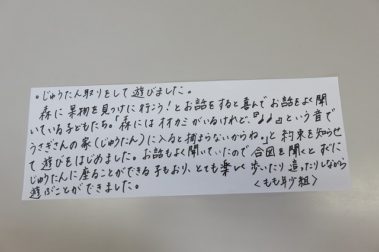 ・じゅうたん取りをして遊びました。
森に果物を見つけに行こう！とお話をすると喜んでお話をよく聞
いている子どもたち。「森にはオオカミがいるけれど、『♩♩♩』という音で
うさぎさんの家(じゅうたん)に入ると捕まらないからね。」と約束を知らせ
て遊びをはじめました。お話もよく聞いていたので合図を聞くとすぐに
じゅうたんに座ることができる子もおり、とても楽しく歩いたり追ったりしながら
遊ぶことができました。
<もも年少組>